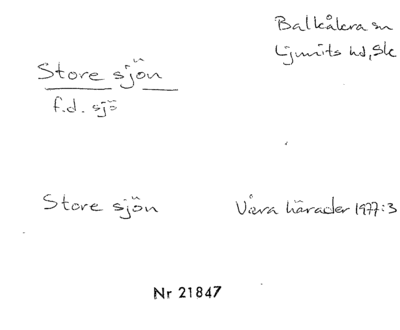 Balkåkra sn
Ljunits hd, Sk
Store sjön
f.d. sjö
Store sjön
Våra härader 1977:3
Nr 21847